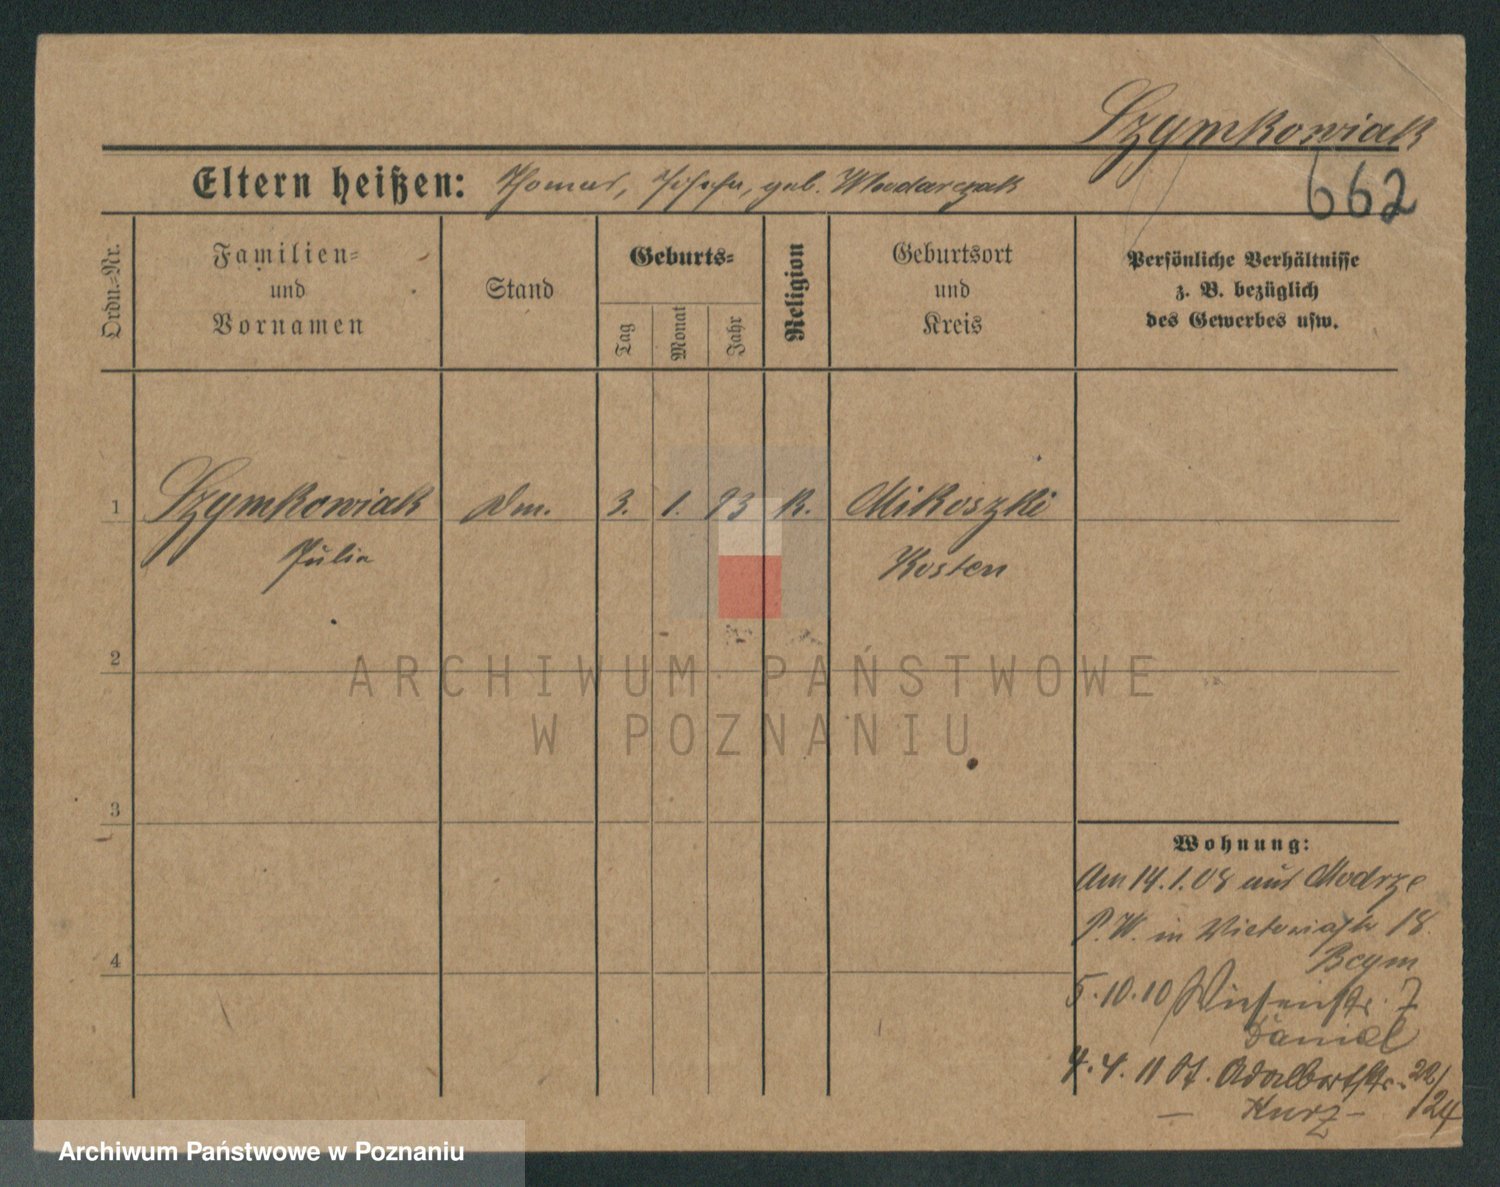 Szymkowiak
662
Eltern heißen: Thomas, Josefa, geb. Wlodarczak
Ordn.-Nr.
Familien-
und
Vornamen
Stand
Geburts-
Tag
Monat
Jahr
Religion
Geburtsort
und
Kreis
Persönliche Verhältnisse
z. B. bezüglich
des Gewerbes usw.
1 Szymkowiak Dm. 3. 1. 93 K. Mikoszki
Julia Kosten
2
ARCHIWUM PAŃSTWOWE
W POZNANIU
3
Wohnung:
Am 14.1.08 aus Modrze
P.W. in Victoriastr 18.
4
5.10.10 Wiesenstr. 7
Daniel
4.4.11 St. Adalbertstr. 22/24
- Kurz -
Archiwum Państwowe w Poznaniu